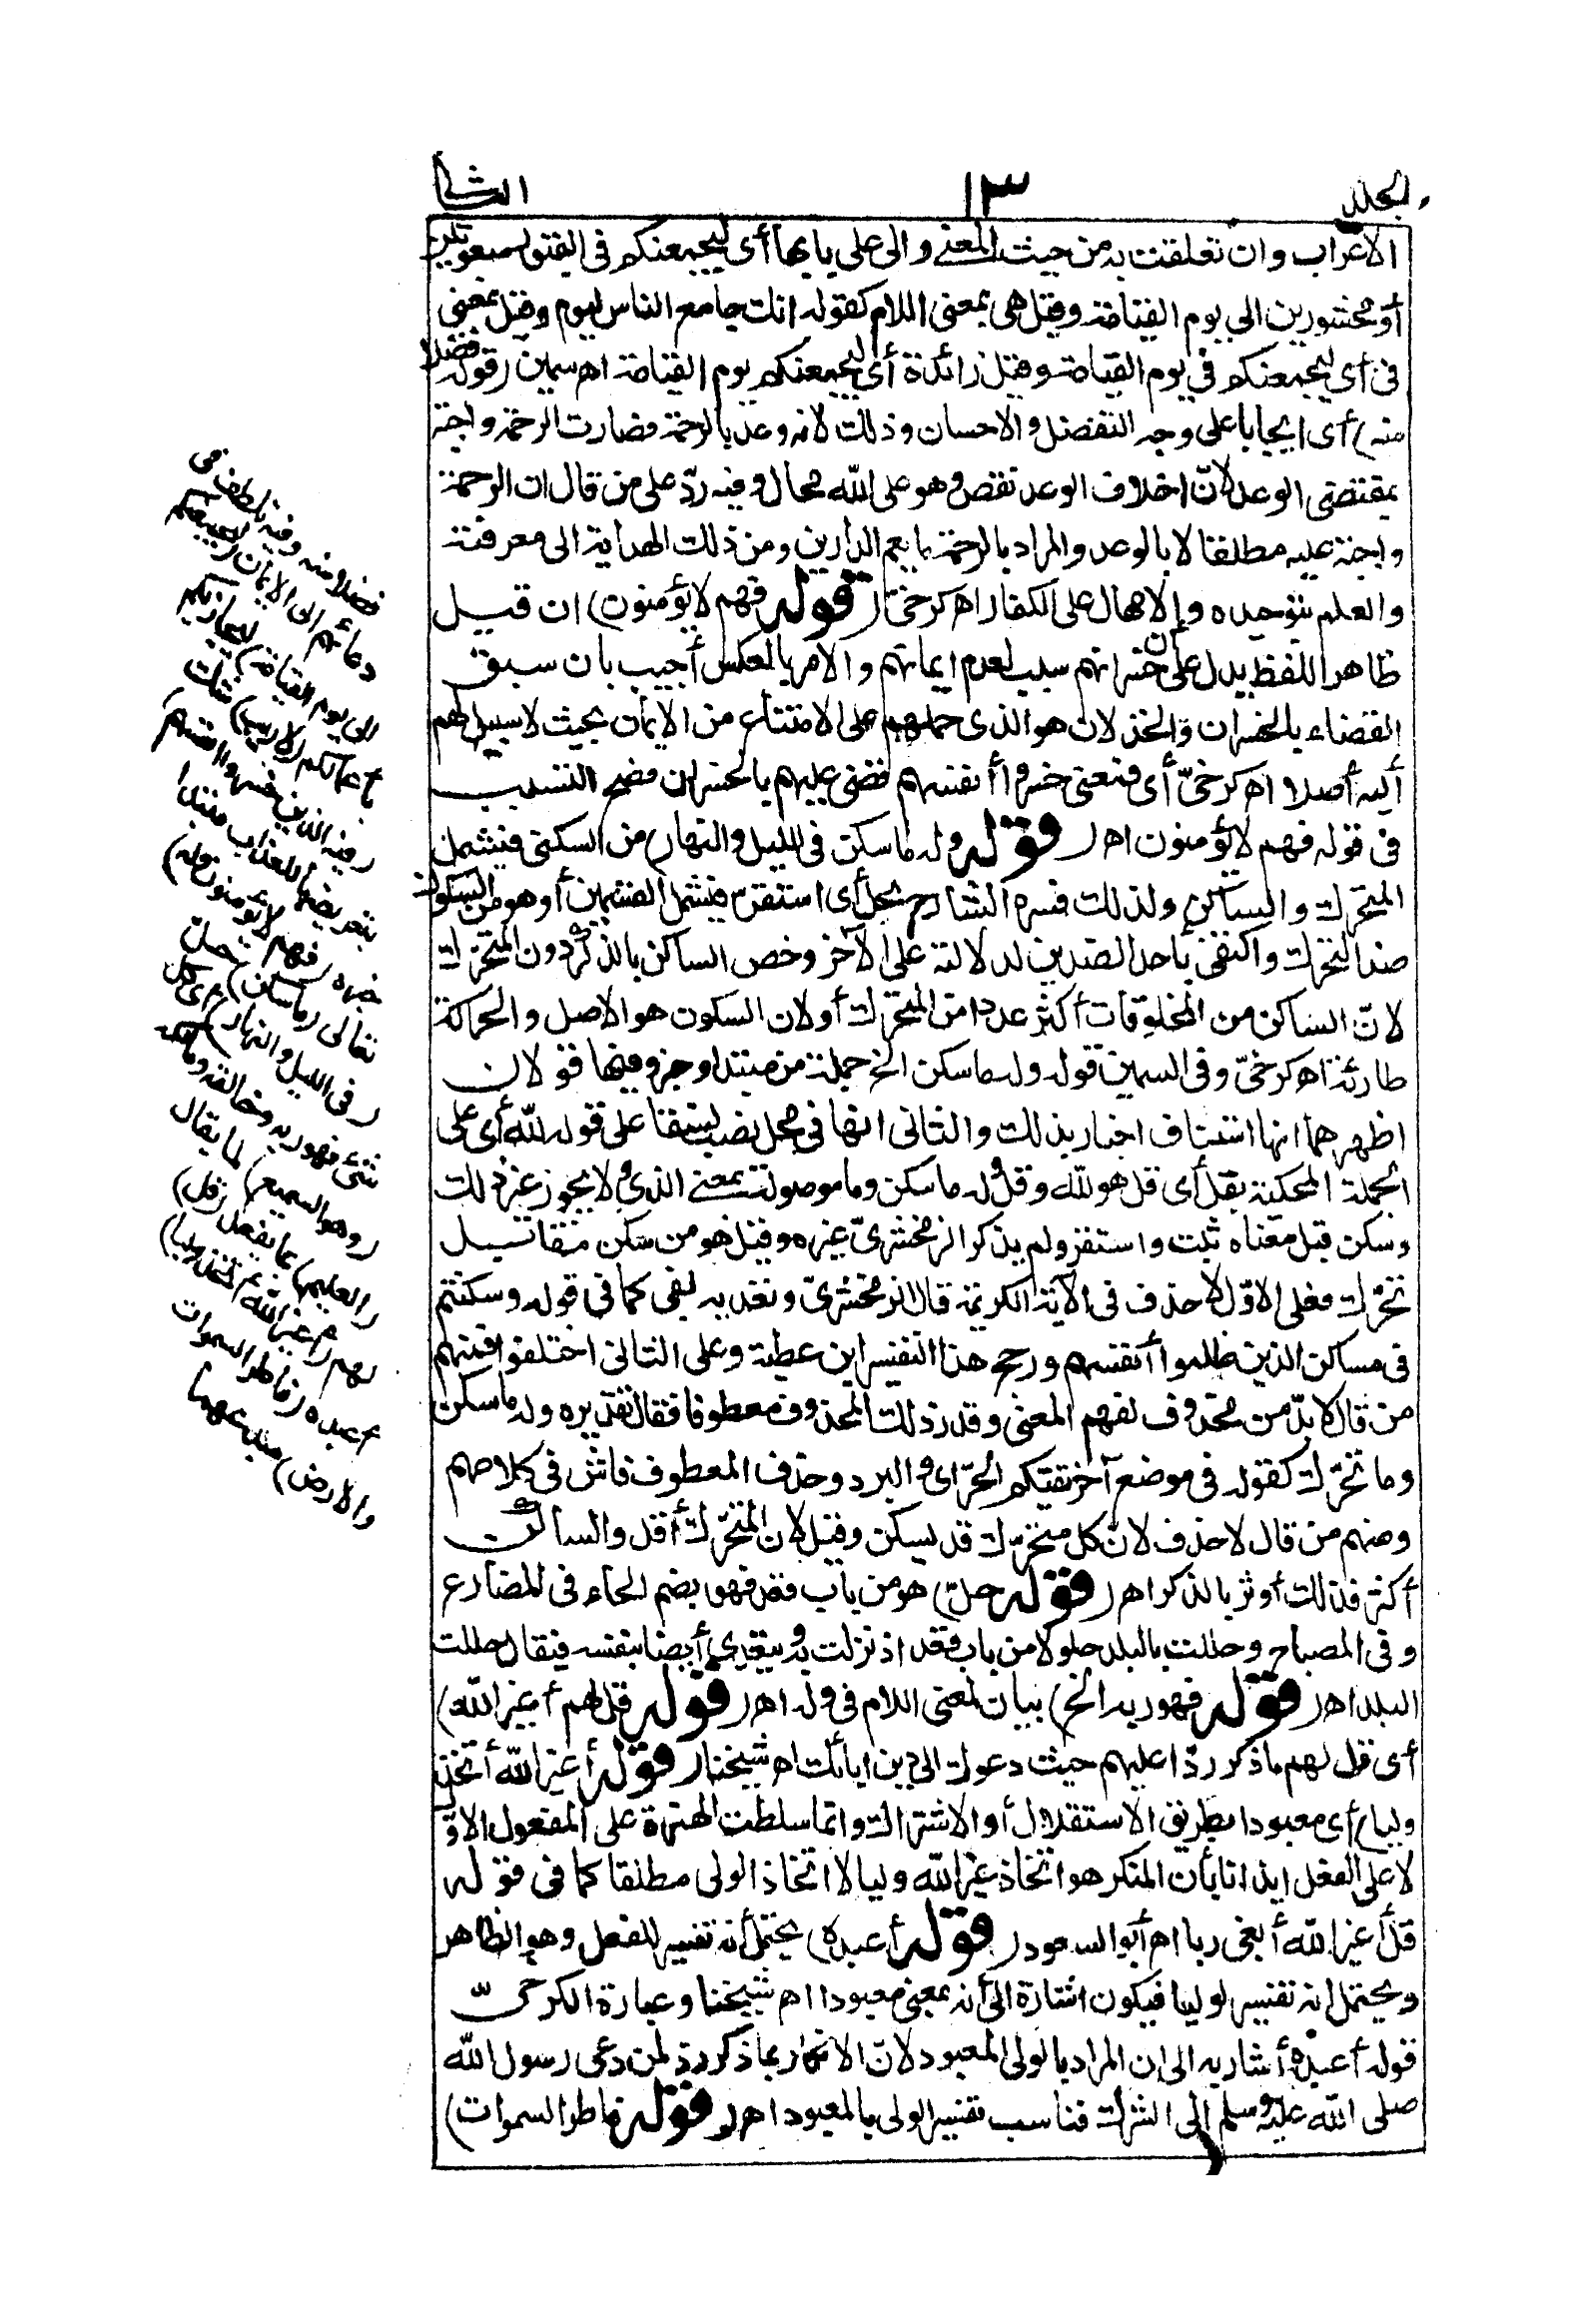 المجلد
١٣
الثانى
الاعراب وان تعلقت به من حيث المعنى والى على بابها أى ليجمعنكم فى القبور مبعوثين
أو محشورين الى يوم القيامة وقيل هى بمعنى اللام كقوله انك جامع الناس ليوم وقيل بمعنى
فى أى ليجمعنكم فى يوم القيامة وقيل زائدة أى ليجمعنكم يوم القيامة اه سمين (قوله فضلا
منه) أى ايجابا على وجه التفضل والاحسان وذلك لانه وعد بالرحمة فصارت الرحمة واجبة
بمقتضى الوعد لانّ اخلاف الوعد نقص وهو على الله محال وفيه ردّ على من قال ان الرحمة
واجبة عليه مطلقا لا بالوعد والمراد بالرحمة ما يعم الدارين ومن ذلك الهداية الى معرفته
والعلم بتوحيده والامهال على الكفار اه كرخىّ (قوله فهم لا يؤمنون) ان قيل
ظاهر اللفظ يدل على أن خسرانهم سبب لعدم ايمانهم والامر بالعكس أجيب بان سبق
القضاء بالخسران والخذلان هو الذى حملهم على الامتناع من الايمان بحيث لا سبيل لهم
أليه أصلا اه كرخىّ أى فمعنى خسروا أنفسهم قضى عليهم بالخسران فصح التسبب
فى قوله فهم لا يؤمنون اه (قوله وله ما سكن فى الليل والنهار) من السكنى فيشمل
المتحرك والساكن ولذلك فسره الشارح بحل أى استقرّ فيشمل القسمين أو هو من السكون
ضد التحرك واكتفى بأحد الضدين لدلالته على الآخر وخص الساكن بالذكر دون المتحرك
لانّ الساكن من المخلوقات أكثر عددا من المتحرك أو لان السكون هو الاصل والحركة
طارئة اه كرخىّ وفى السمين قوله وله ما سكن الخ جملة من مبتدا وخبر وفيها قولان
اظهرهما انها استئناف اخبار بذلك والثانى انها فى محل نصب نسقا على قوله لله أى على
الجملة المحكية بقل أى قل هو لله وقل وله ما سكن وما موصولة بمعنى الذى ولا يجوز غير ذلك
وسكن قيل معناه ثبت واستقر ولم يذكر الزمخشرىّ غيره وقيل هو من سكن مقابل
تحرّك فعلى الاوّل لا حذف فى الآية الكريمة قال الزمخشرىّ وتعديه بفى كما فى قوله وسكنتم
فى مساكن الذين ظلموا أنفسهم ورجح هذا التفسير ابن عطية وعلى الثانى اختلفوا فمنهم
من قال لا بدّ من محذوف لفهم المعنى وقدر ذلك المحذوف معطوفا فقال تقديره وله ما سكن
وما تحرّك كقوله فى موضع آخر تقيكم الحرّ اى والبرد وحذف المعطوف فاش فى كلامهم
ومنهم من قال لا حذف لانّ كل متحرّك قد يسكن وقيل لان المتحرّك أقل والساكن
أكثر فذلك أوثر بالذكر اه (قوله حلّ) هو من باب قعد فهو بضم الحاء فى المضارع
وفى المصباح وحللت بالبلد حلولا من باب قعد اذ نزلت به ويتعدى أيضا بنفسه فيقال حللت
البلد اه (قوله فهو ربه الخ) بيان لمعنى اللام فى وله اه (قوله قل لهم أغير الله)
أى قل لهم ما ذكر ردّا عليهم حيث دعوك الى دين ابائك اه شيخنا (قوله أغير الله أتخذ
وليا) أى معبودا بطريق الاستقلال أو الاشتراك وانما سلطت الهمزة على المفعول الاوّل
لا على الفعل ايذانا بأن المنكر هو اتخاذ غير الله وليا لا اتخاذ الولى مطلقا كما فى قوله
قل أغير الله أبغى ربا اه أبو السعود (قوله أعبده) يحتمل أنه تفسير للفعل وهو الظاهر
ويحتمل انه تفسير لوليا فيكون اشارة الى أنه بمعنى معبودا اه شيخنا وعبارة الكرخىّ
قوله أعبده أشار به الى ان المراد بالولى المعبود لانّ الانكار بما ذكر ردّ لمن دعى رسول الله
صلى الله عليه وسلم الى الشرك فناسب تفسير الولى بالمعبود اه (قوله فاطر السموات)
فضلا منه وفيه تلطف فى
دعائهم الى الايمان (ليجمعنكم
الى يوم القيامة) ليجازيكم
بأعمالكم (لا ريب) شك
(فيه الذين خسروا أنفسهم)
بتعريضها للعذاب مبتدا
خبره (فهم لا يؤمنون وله)
تعالى (ما سكن) حلّ
(فى الليل والنهار) أى كل
شئ فهو ربه وخالقه ومالكه
(وهو السميع) لما يقال
(العليم) بما يفعل (قل)
لهم (أغير الله أتخذ وليا)
أعبده (فاطر السموات
والارض) مبدعهما